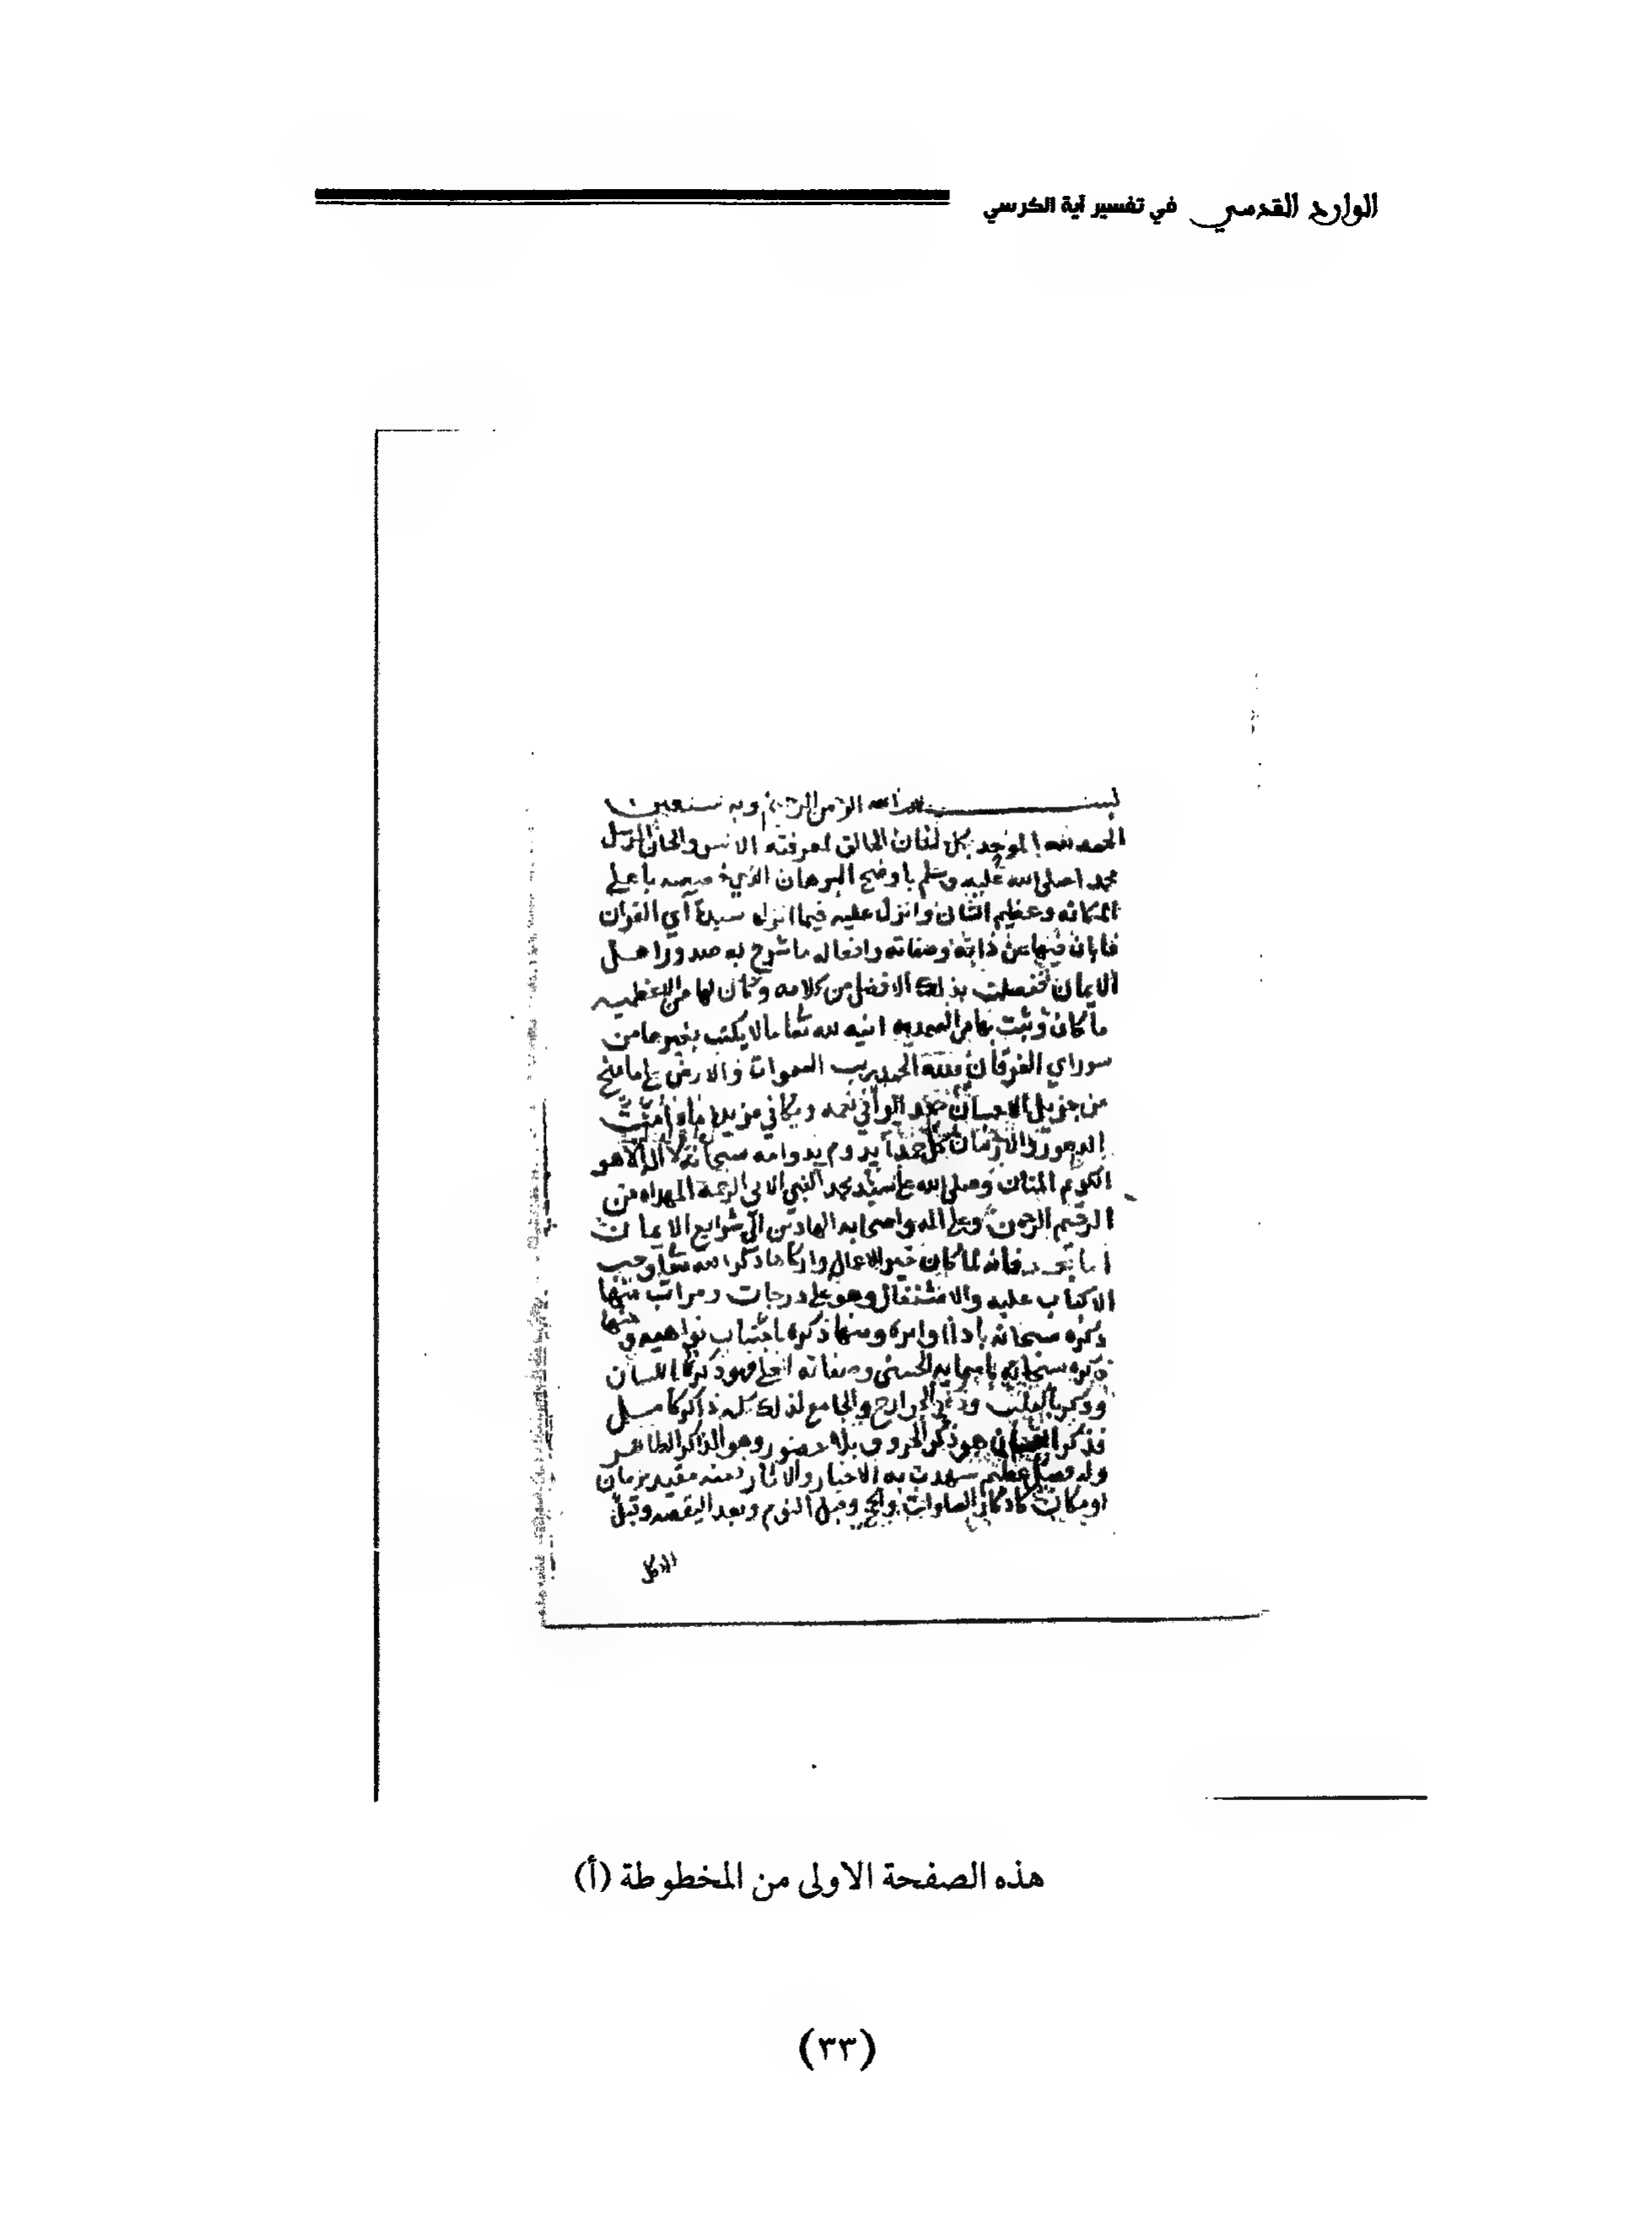 الوارد القدسي في تفسير آية الكرسي
بسم الله الرحمن الرحيم وبه نستعين
الحمد لله الموجد بكل الخالق لمعرفته الانس والجان المرسل
محمدا صلى الله عليه وسلم باوضح البرهان الذي باعلى
المكانه وعظيم الشان وانزل عليه فيما انزله سيدة آي القران
فابان فيها عن ذاته وصفاته وافعاله ما شرح به صدور اهل
الايمان بذلك الافضل من كلامه وكان لها من العظمه
ما كان وثبت بها من لله تعا ما لا بغيرها من
سور آي الفرقان فلله الحمد رب السموات والارض على ما منح
من جزيل الاحسان حمدا يوافي نعمه ويكافي مزيده
الدهور والازمان حمدا يدوم بدوامه سبحانه لا اله الا هو
الكريم المنان وصلى الله على سيدنا محمد النبي الامي الرحمة المهداه من
الرحيم الرحمن وعلى اله واصحابه الهادين الى شرايع الايمان
اما بعد فانه لما كان خير الاعمال وازكاها ذكر الله تعا وجب
الاكباب عليه والاشتغال وهو على درجات ومراتب منها
ذكره سبحانه باداا وامره ومنها ذكره باجتناب نواهيه ومنها
ذكره سبحانه باسمايه الحسنى وصفاته فهو ذكر باللسان
وذكر بالقلب وذكر الجوارح والجامع لذلك كله ذاكر كامل
فذكر اللسان هو ذكر الحروف بلا حضور وهو الذكر الظاهر
وله فضل عظيم شهدت به الاخبار والاثار فمنه مقيد بزمان
او مكان كاذكار الصلوات والحج وقبل النوم وبعد اليقضه وقبل
الاكل
هذه الصفحة الاولى من المخطوطة (أ)
(٣٣)